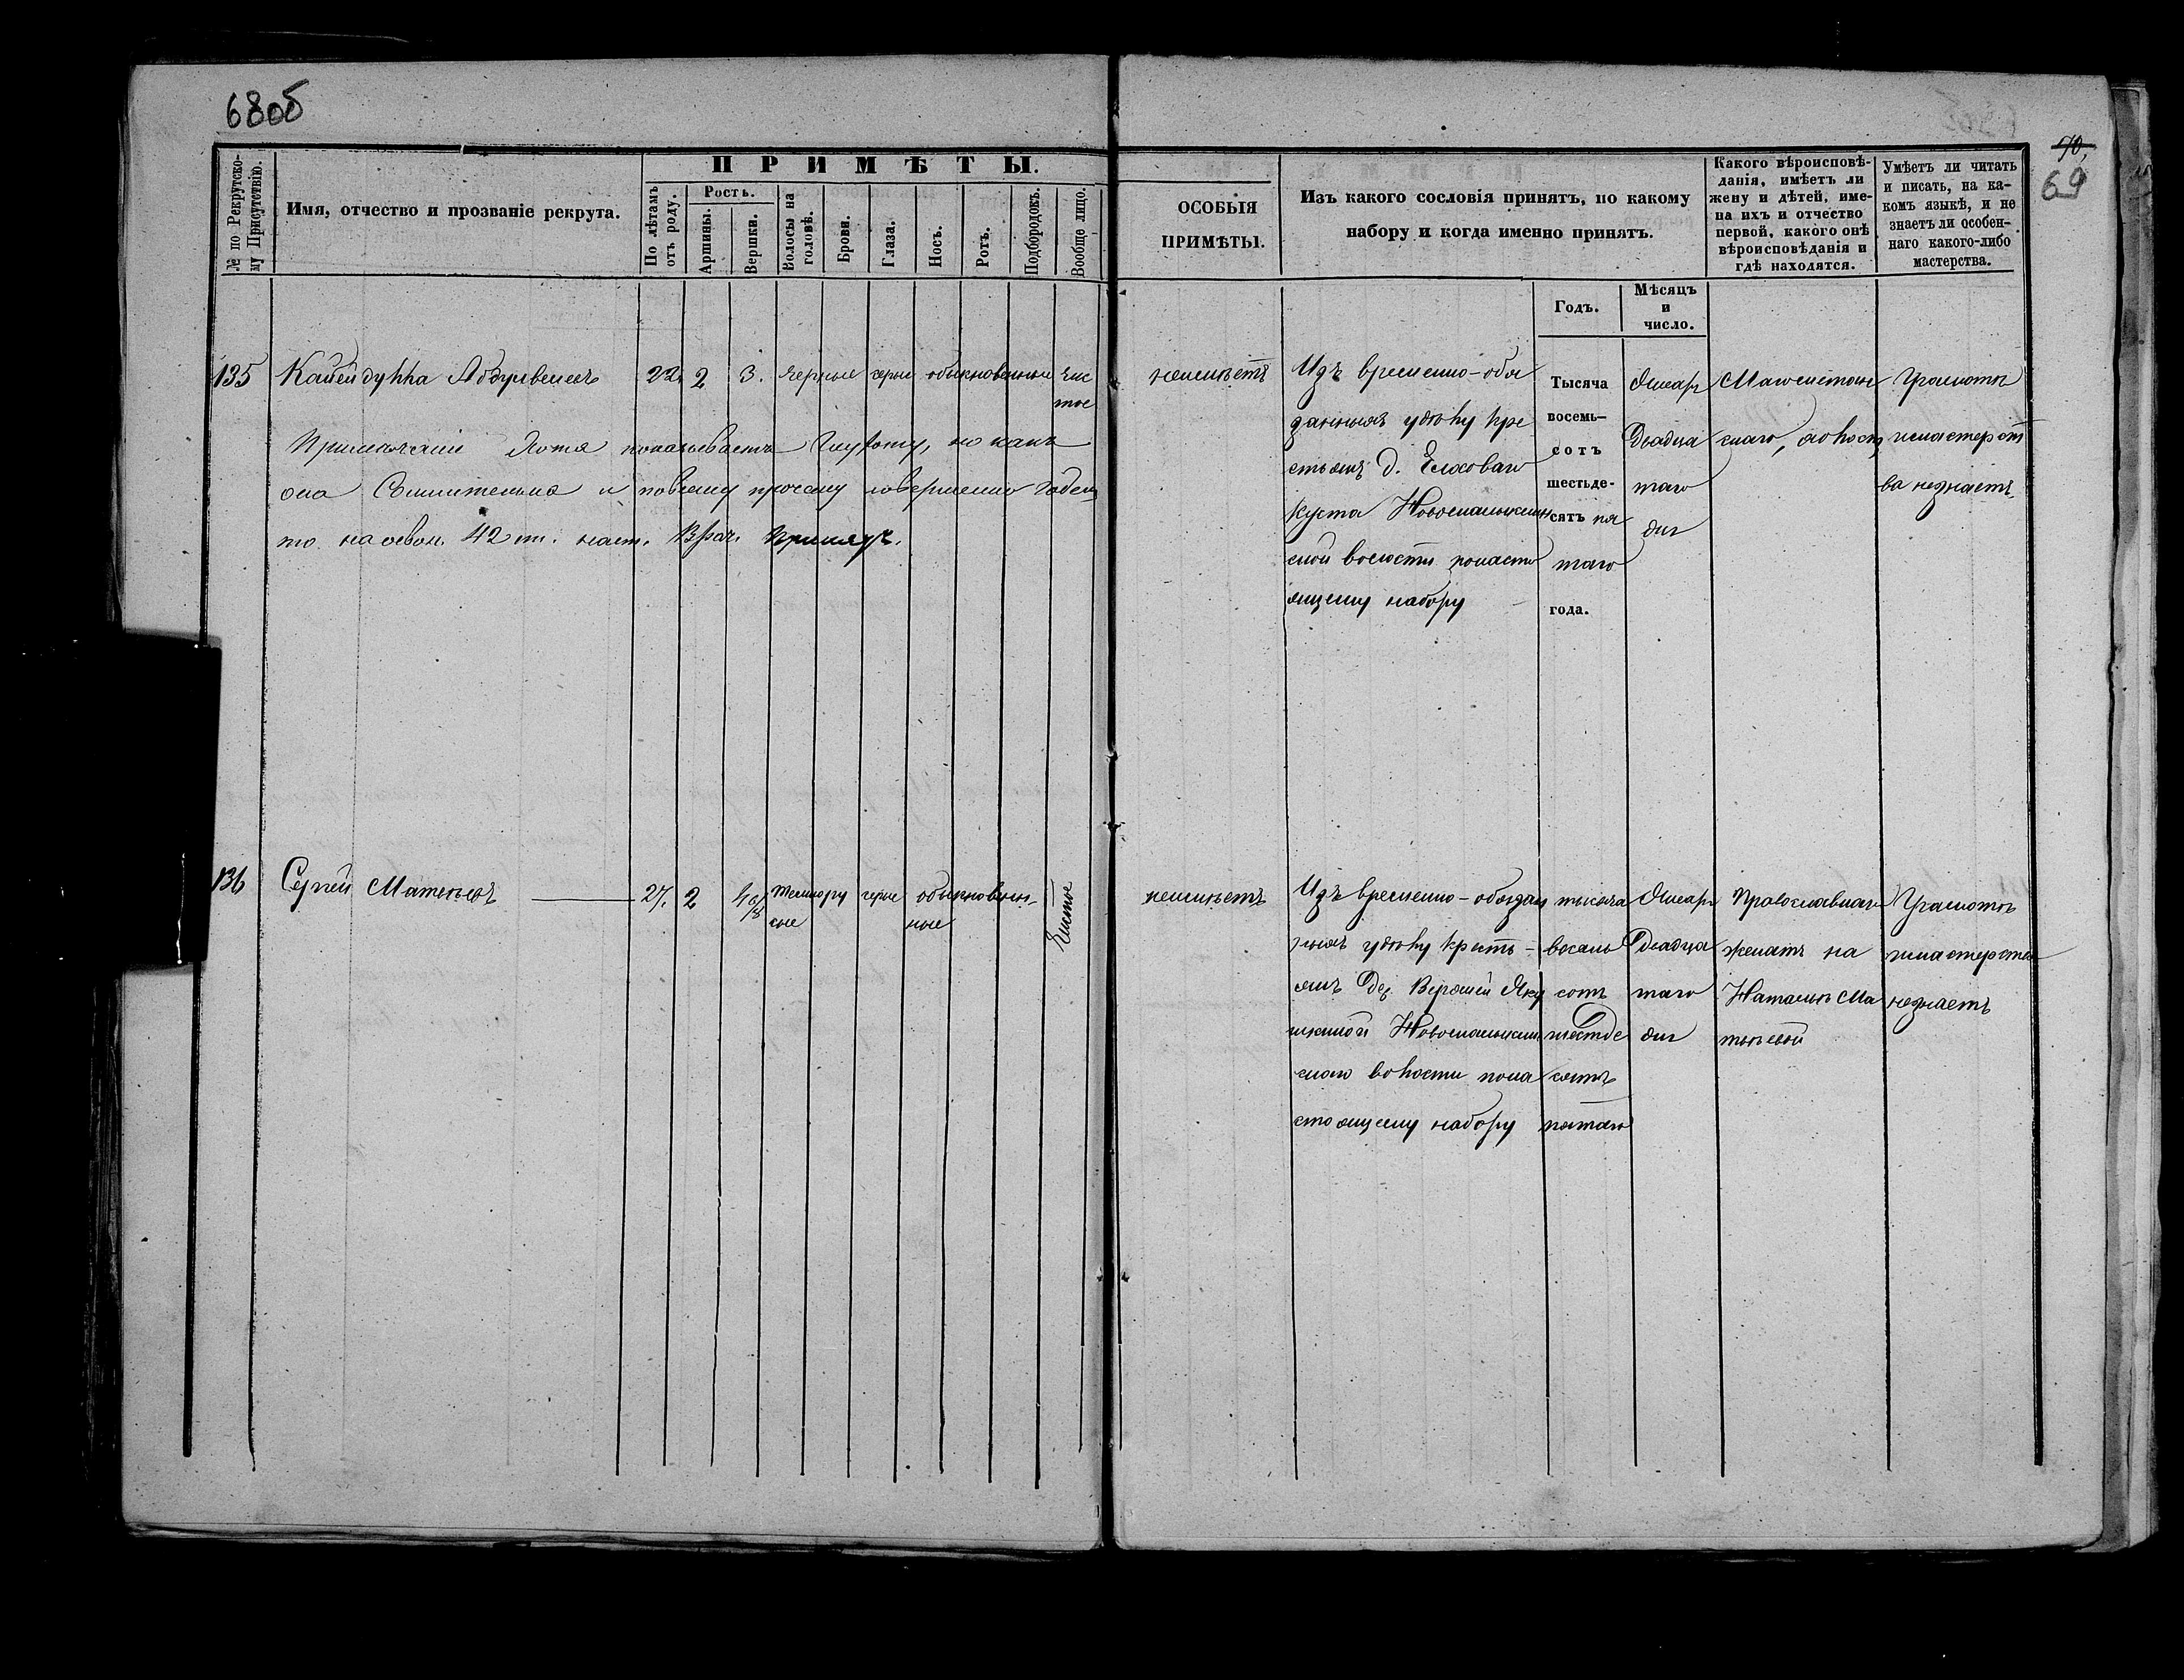 68об
70,
69
№ по Рекрутско-
му Присутствію.
Имя, отчество и прозваніе рекрута.
ПРИМѢТЫ.
По лѣтамъ
отъ роду.
Ростъ.
Аршины.
Вершки.
Волосы на
головѣ.
Брови.
Глаза.
Носъ.
Ротъ.
Подбородокъ.
Вообще лицо.
ОСОБЫЯ
ПРИМѢТЫ.
Изъ какого сословія принятъ, по какому
набору и когда именно принятъ.
Годъ.
Мѣсяцъ
и
число.
Какого вѣроисповѣ-
данія, имѣетъ ли
жену и дѣтей, име-
на ихъ и отчество
первой, какого онѣ
вѣроисповѣданія и
гдѣ находятся.
Умѣетъ ли читать
и писать, на ка-
комъ языкѣ, и не
знаетъ ли особен-
наго какого-либо
мастерства.
135
22 2 3. черные карие обыкновенные чис
тое
Примѣчаніе Хотя показываетъ глухоту, но какъ
она Сомнительна и по всему прочему совершенно годенъ
то на основ. 42 ст. наст. Врач. Принятъ.
неимѣетъ
Изъ временно-обя
занныхъ удѣлу кре
стьянъ д. Елховаго
Куста Новомалыклин
ской волости по насто
ящему набору
Тысяча
восемь-
сотъ
шестьде-
сятъ пя
таго
года.
Январ
Двадца
таго
дня
Магометан
скаго, холостъ
Грамотѣ
и мастерст
ва незнаетъ
136
Сергѣй Матвѣевъ
27. 2 4 6/8 темнору карие обыкновен-
сые ные
Чистое
неимѣетъ
Изъ временно-обязан
ныхъ удѣлу кресть-
янъ Дер. Верхней Яку
шкиной Новомалыклин
ской волости по на
стоящему набору
тысяча
восемь
сотъ
шестьде
сятъ
пятаго
Январ
Двадца
таго
дня
Православнаго
женатъ на
Натальѣ Ма
твѣевой
Грамотѣ
и мастерства
незнаетъ